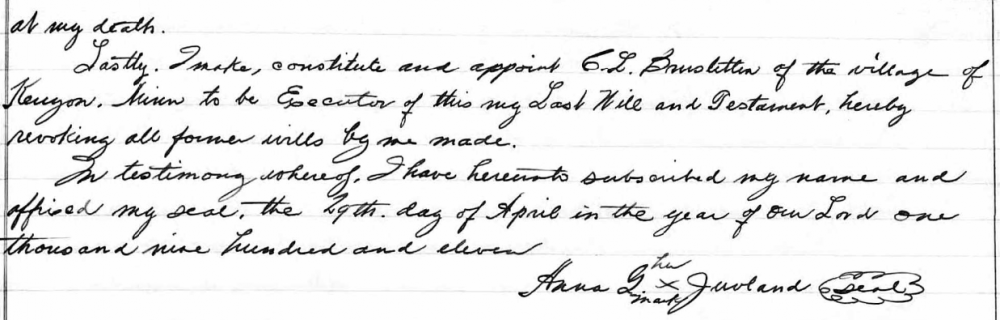 at my death.
Lastly. I make, constitute and appoint C. L. Brusletten of the village of
Kenyon, Minn to be Executor of this my Last Will and Testament, hereby
revoking all former wills by me made.
In testimony whereof, I have hereunto subscribed my name and
affixed my seal, the 29th. day of April in the year of Our Lord one
thousand nine hundred and eleven
her
Anna G. x Juvland Seal
mark